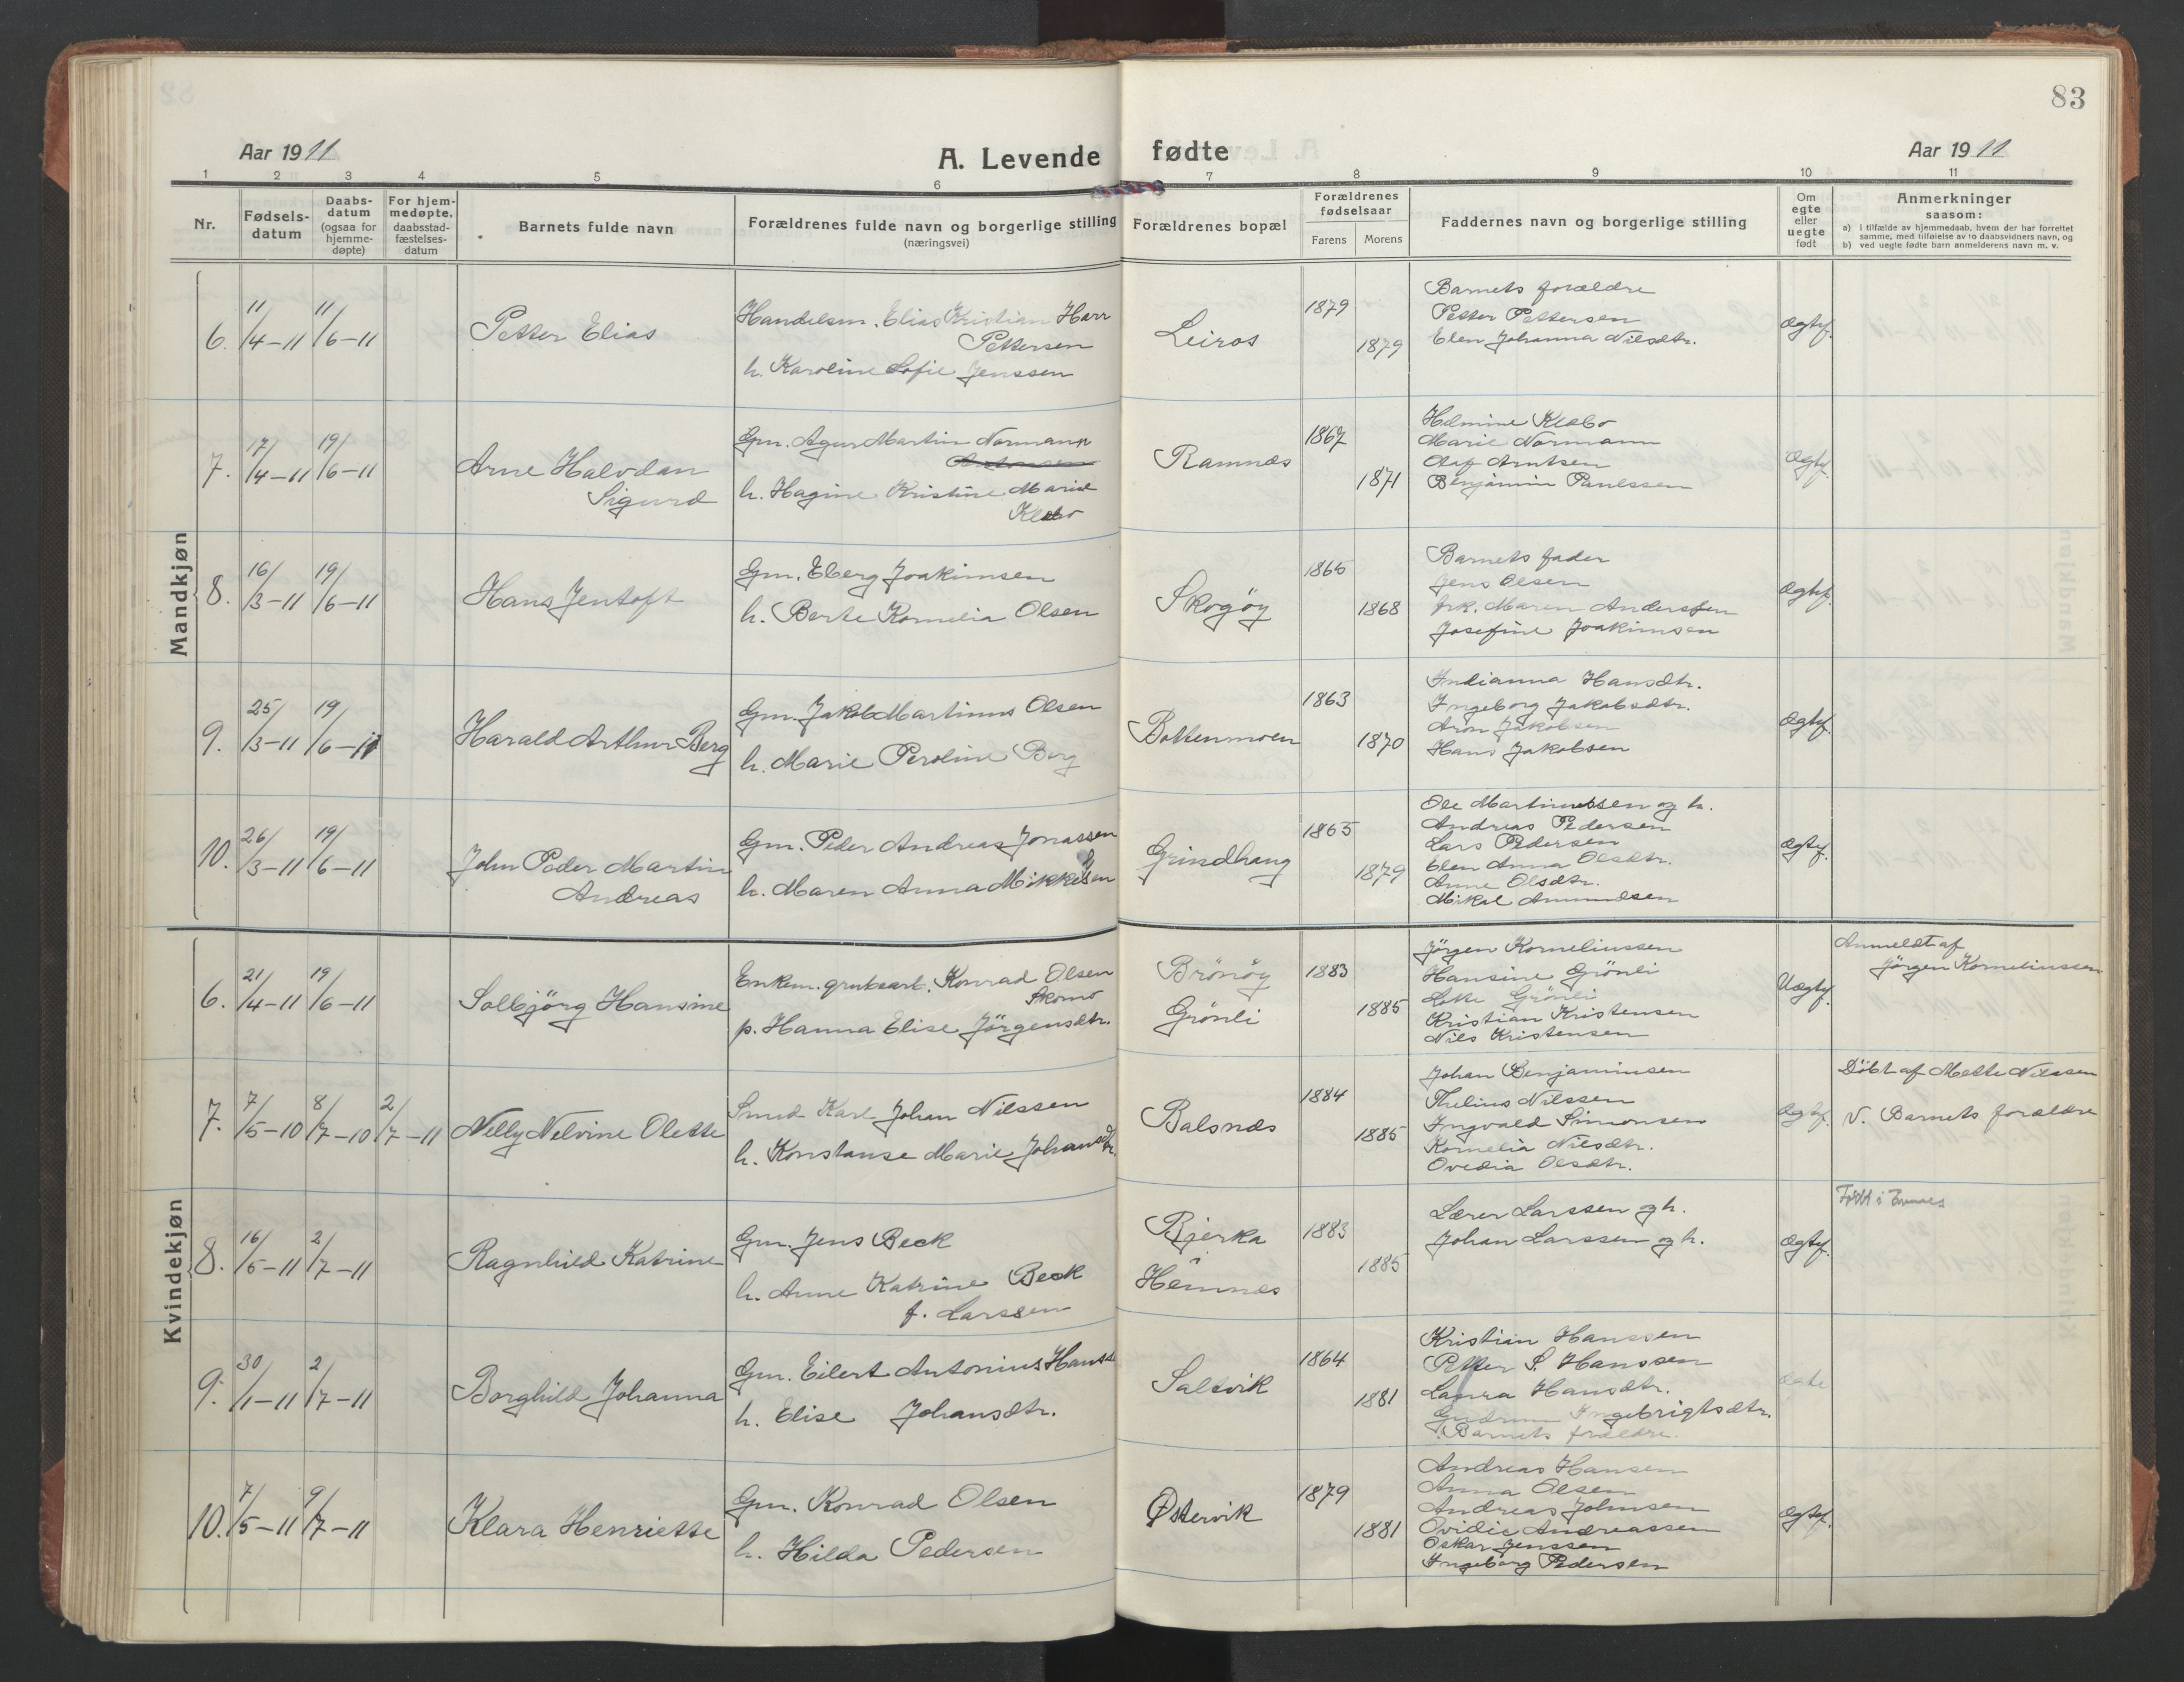 83
Aar 1911
A. Levende fødte
Aar 1911
1 2 3 4 5 6 7 8 9 10 11
Nr.
Fødsels-
datum
Daabs-
datum
(ogsaa for
hjemme-
døpte)
For hjem-
medøpte,
daabsstad-
fæstelses-
datum
Barnets fulde navn
Forældrenes fulde navn og borgerlige stilling
(næringsvei)
Forældrenes bopæl
Forældrenes
fødselsaar
Farens
Morens
Faddernes navn og borgerlige stilling
Om
egte
eller
uegte
født
Anmerkninger
saasom:
a) i tilfælde av hjemmedaab, hvem der har forrettet
samme, med tilføielse av to daabsvidners navn, og
b) ved uegte fødte barn anmelderens navn m. v.
Mandkjøn
6.
11/4-11
11/6-11
Petter Elias
Handelsm. Elias Kristian Harr
Pettersen
h. Karoline Sofie Jenssen
Leiros
1879
1879
Barnets forældre
Petter Pettersen
Elen Johanna Nilsdtr.
ægtef.
7.
17/4-11
19/6-11
Arne Halvdan
Sigurd
Gm. Agur Martin Normann
h. Hagine Kristine Marie
Klæbo
Ramnæs
1867
1871
Helmine Klæbo
Marie Normann
Olaf Arntsen
Benjamin Paulssen
ægtef.
8.
16/3-11
19/6-11
Hans Jentoft
Gm. Eberg Joakimsen
h. Berte Kornelia Olsen
Skogöy
1865
1868
Barnets fader
Jens Olsen
frk. Maren Anderssen
Josefine Joakimsen
ægtef.
9.
25/3-11
19/6-11
Harald Arthur Berg
Gm. Jakob Martinus Olsen
h. Marie Peroline Berg
Bottenmoen
1863
1870
Indianna Hansdtr.
Ingeborg Jakobsdtr.
Aron Jakobsen
Hans Jakobsen
ægtef.
10.
26/3-11
19/6-11
John Peder Martin
Andreas
Gm. Peder Andreas Jonassen
h. Maren Anna Mikkelsen
Grindhaug
1865
1879
Ole Martinussen og h.
Andreas Pedersen
Lars Pedersen
Elen Anna Olsdtr.
Anne Olsdtr.
Mikal Amundsen
ægtef.
Kvindekjøn
6.
21/4-11
19/6-11
Solbjörg Hansine
Enkem. grubearb. Konrad Olsen
Skomo
p. Hanna Elise Jörgensdtr.
Brönöy
Grönli
1883
1885
Jörgen Korneliussen
Hansine Grönli
Lotte Grönli
Kristian Kristensen
Nils Kristensen
Uægtef.
Anmeldt af
Jörgen Korneliussen
7.
7/5-10
8/7-10
2/7-11
Nelly Nelvine Olette
Smed Karl Johan Nilssen
h. Konstanse Marie Johansdtr.
Balsnæs
1884
1885
Johan Benjaminsen
Thelius Nilssen
Ingvald Simonsen
Kornelia Nilsdtr.
Ovedia Olsdtr.
ægtef.
Döbt af Mette Nilssen
V. Barnets forældre
8.
16/5-11
2/7-11
Ragnhild Katrine
Gm. Jens Beck
h. Anne Katrine Beck
f. Larssen
Bjerka
Hemnæs
1883
1885
Lærer Larssen og h.
Johan Larssen og h.
ægtef.
Født i
9.
30/1-11
2/7-11
Borghild Johanna
Gm. Eilert Antonius Hanss
h. Elise Johansdtr.
Saltvik
1864
1881
Kristian Hanssen
Petter S. Hanssen
Laura Hansdtr.
Gudrun Ingebrigtsdtr.
Barnets forældre.
ægte
10.
7/5-11
9/7-11
Klara Henriette
Gm. Konrad Olsen
h. Hilda Pedersen
Østervik
1879
1881
Andreas Hansen
Anna Olsen
Andreas Johnsen
Ovidie Andreassen
Oskar Jenssen
Ingeborg Pedersen
ægtef.